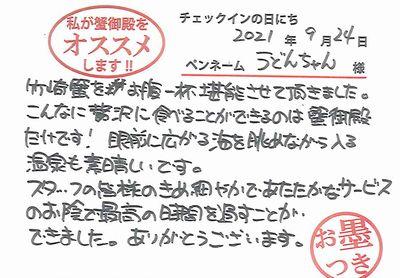 私が蟹御殿を
オススメ
します!!
チェックインの日にち
2021年9月24日
ペンネーム うどんちゃん 様
竹崎蟹をお腹一杯堪能させて頂きました。
こんなに贅沢に食べることができるのは蟹御殿
だけです! 眼前に広がる海を眺めながら入る
温泉も素晴しいです。
スタッフの皆様のきめ細やかであたたかなサービス
のお陰で最高の時間を過すことが
できました。ありがとうございます。
お墨
つき